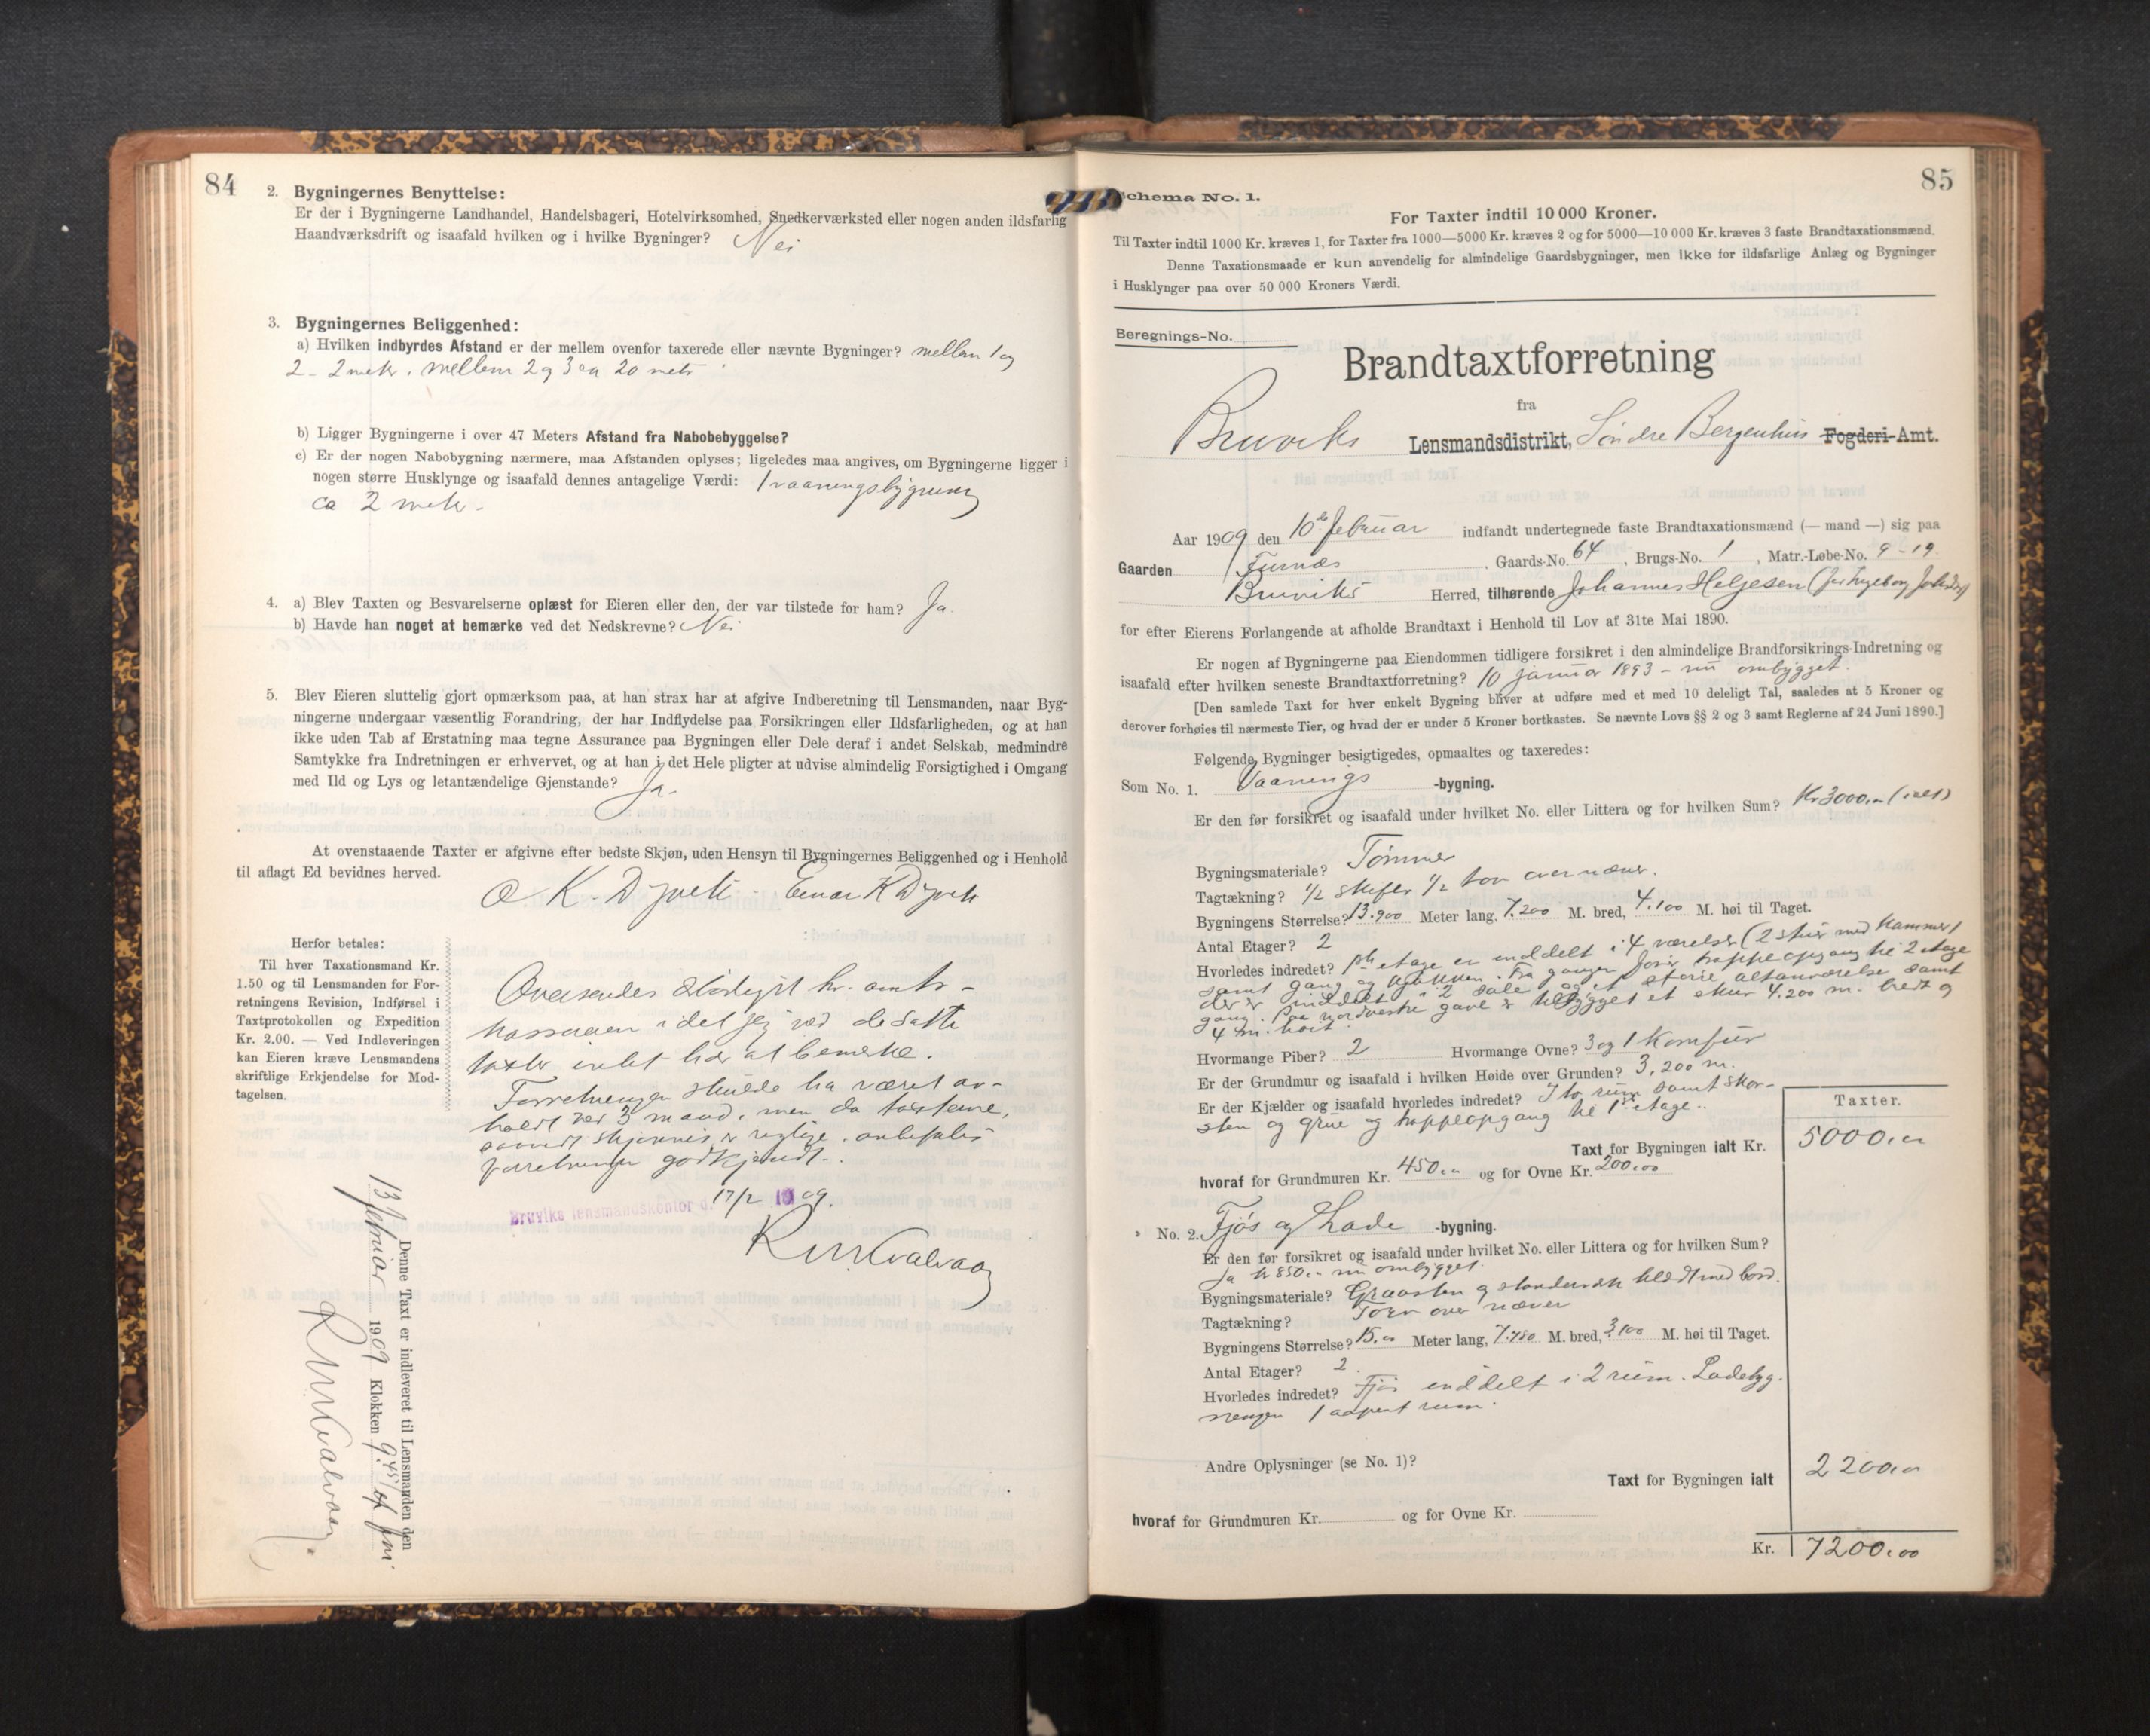 84
2. Bygningernes Benyttelse:
Er der i Bygningerne Landhandel, Handelsbageri, Hotelvirksomhed, Snedkerværksted eller nogen anden ildsfarlig
Haandværksdrift og isaafald hvilken og i hvilke Bygninger? Nei
3. Bygningernes Beliggenhed:
a) Hvilken indbyrdes Afstand er der mellem ovenfor taxerede eller nævnte Bygninger? mellem 1 og
2 - 2 meter. mellem 2 og 3 ca 20 meter
b) Ligger Bygningerne i over 47 Meters Afstand fra Nabobebyggelse?
c) Er der nogen Nabobygning nærmere, maa Afstanden oplyses; ligeledes maa angives, om Bygningerne ligger i
nogen større Husklynge og isaafald dennes antagelige Værdi: 1 vaaningsbygning
ca 2 meter.
4. a) Blev Taxten og Besvarelserne oplæst for Eieren eller den, der var tilstede for ham? Ja.
b) Havde han noget at bemærke ved det Nedskrevne? Nei
5. Blev Eieren sluttelig gjort opmærksom paa, at han strax har at afgive Indberetning til Lensmanden, naar Byg-
ningerne undergaar væsentlig Forandring, der har Indflydelse paa Forsikringen eller Ildsfarligheden, og at han
ikke uden Tab af Erstatning maa tegne Assurance paa Bygningen eller Dele deraf i andet Selskab, medmindre
Samtykke fra Indretningen er erhvervet, og at han i det Hele pligter at udvise almindelig Forsigtighed i Omgang
med Ild og Lys og letantændelige Gjenstande? Ja.
At ovenstaaende Taxter er afgivne efter bedste Skjøn, uden Hensyn til Bygningernes Beliggenhed og i Henhold
til aflagt Ed bevidnes herved.
O. K. Dyvik. Einar K Dyvik
Herfor betales:
Til hver Taxationsmand Kr.
1.50 og til Lensmanden for For-
retningens Revision, Indførsel i
Taxtprotokollen og Expedition
Kr. 2.00. — Ved Indleveringen
kan Eieren kræve Lensmandens
skriftlige Erkjendelse for Mod-
tagelsen.
Oversendes hr. amts-
kassereren idet jeg ved de satte
taxter intet har at bemerke.
Forretningen skulde ha været av-
holdt ved 3 mand, men da taxterne,
skjønnes er rigtige, anbefales
forretningen godkjendt.
Bruviks lensmandskontor d. 17/2 1909.
Denne Taxt er indleveret til Lensmanden den
13 februar 1909 Klokken 9.45 fm.
85
Schema No. 1.
For Taxter indtil 10 000 Kroner.
Til Taxter indtil 1000 Kr. kræves 1, for Taxter fra 1000—5000 Kr. kræves 2 og for 5000—10 000 Kr. kræves 3 faste Brandtaxationsmænd.
Denne Taxationsmaade er kun anvendelig for almindelige Gaardsbygninger, men ikke for ildsfarlige Anlæg og Bygninger
i Husklynger paa over 50 000 Kroners Værdi.
Beregnings-No.
Brandtaxtforretning
fra
Bruviks Lensmandsdistrikt, Søndre Bergenhus Fogderi-Amt.
Aar 1909 den 10de februar indfandt undertegnede faste Brandtaxationsmænd (— mand —) sig paa
Gaarden Furnæs, Gaards-No. 64, Brugs-No. 1, Matr.-Løbe-No. 9-19.
Bruviks Herred, tilhørende Johannes Helgesen (for Ingeborg
for efter Eierens Forlangende at afholde Brandtaxt i Henhold til Lov af 31te Mai 1890.
Er nogen af Bygningerne paa Eiendommen tidligere forsikret i den almindelige Brandforsikrings-Indretning og
isaafald efter hvilken seneste Brandtaxtforretning? 10 januar 1893 - nu ombygget.
[Den samlede Taxt for hver enkelt Bygning bliver at udføre med et med 10 deleligt Tal, saaledes at 5 Kroner og
derover forhøies til nærmeste Tier, og hvad der er under 5 Kroner bortkastes. Se nævnte Lovs §§ 2 og 3 samt Reglerne af 24 Juni 1890.]
Følgende Bygninger besigtigedes, opmaaltes og taxeredes:
Som No. 1. Vaanings -bygning.
Er den før forsikret og isaafald under hvilket No. eller Littera og for hvilken Sum? Kr 3000.00 (ialt)
Bygningsmateriale? Tømmer
Tagtækning? 1/2 skifer 1/2 torv over næver.
Bygningens Størrelse? 13.900 Meter lang, 7.200 M. bred, 4.100 M. høi til Taget.
Antal Etager? 2
Hvorledes indredet? 1ste etage er inddelt i 4 værelser (2 stuer med kammer)
samt gang og kjøkken. Fra gangen fører trappeopgang til 2 etage
der er inddelt i 2 sale og et større altanværelse samt
gang. Paa nordvestre gavl er tilbygget et skur 4.200 m. bredt og
4 m. høit.
Hvormange Piber? 2 Hvormange Ovne? 3 og 1 Komfur
Er der Grundmur og isaafald i hvilken Høide over Grunden? 3.200 m.
Er der Kjælder og isaafald hvorledes indredet? I to rum samt skor-
sten og grue og trappeopgang til 1ste etage.
Taxter.
Taxt for Bygningen ialt Kr. 5000.00
hvoraf for Grundmuren Kr. 450.00 og for Ovne Kr. 200.00
" No. 2. Fjøs og Lade -bygning.
Er den før forsikret og isaafald under hvilket No. eller Littera og for hvilken Sum?
Ja kr 850.- nu ombygget.
Bygningsmateriale? Graasten og standerverk klædt med bord.
Tagtækning? Torv over næver
Bygningens Størrelse? 15.00 Meter lang, 7.780 M. bred, 3.100 M. høi til Taget.
Antal Etager? 2.
Hvorledes indredet? Fjøs inddelt i 2 rum. Ladebyg-
ningen 1 aapent rum.
Andre Oplysninger (se No. 1)?
Taxt for Bygningen ialt 2200.00
hvoraf for Grundmuren Kr. og for Ovne Kr.
Kr. 7200.00